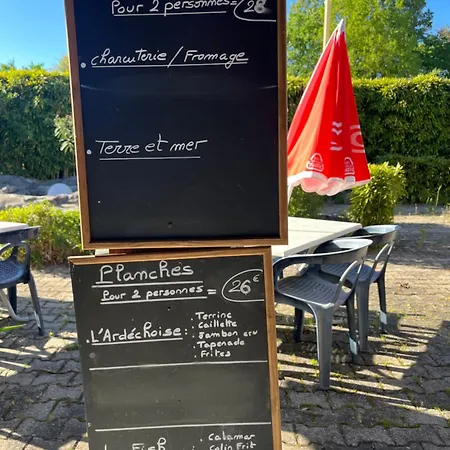 Pour 2 personnes = 28
. Charcuterie / Fromage
. Terre et mer
Planches
Pour 2 personnes = 26€
L'Ardéchoise : . Terrine
. Caillette
. Jambon cru
. Tapenade
. Frites
Fish : . Calamar
. Colin Frit